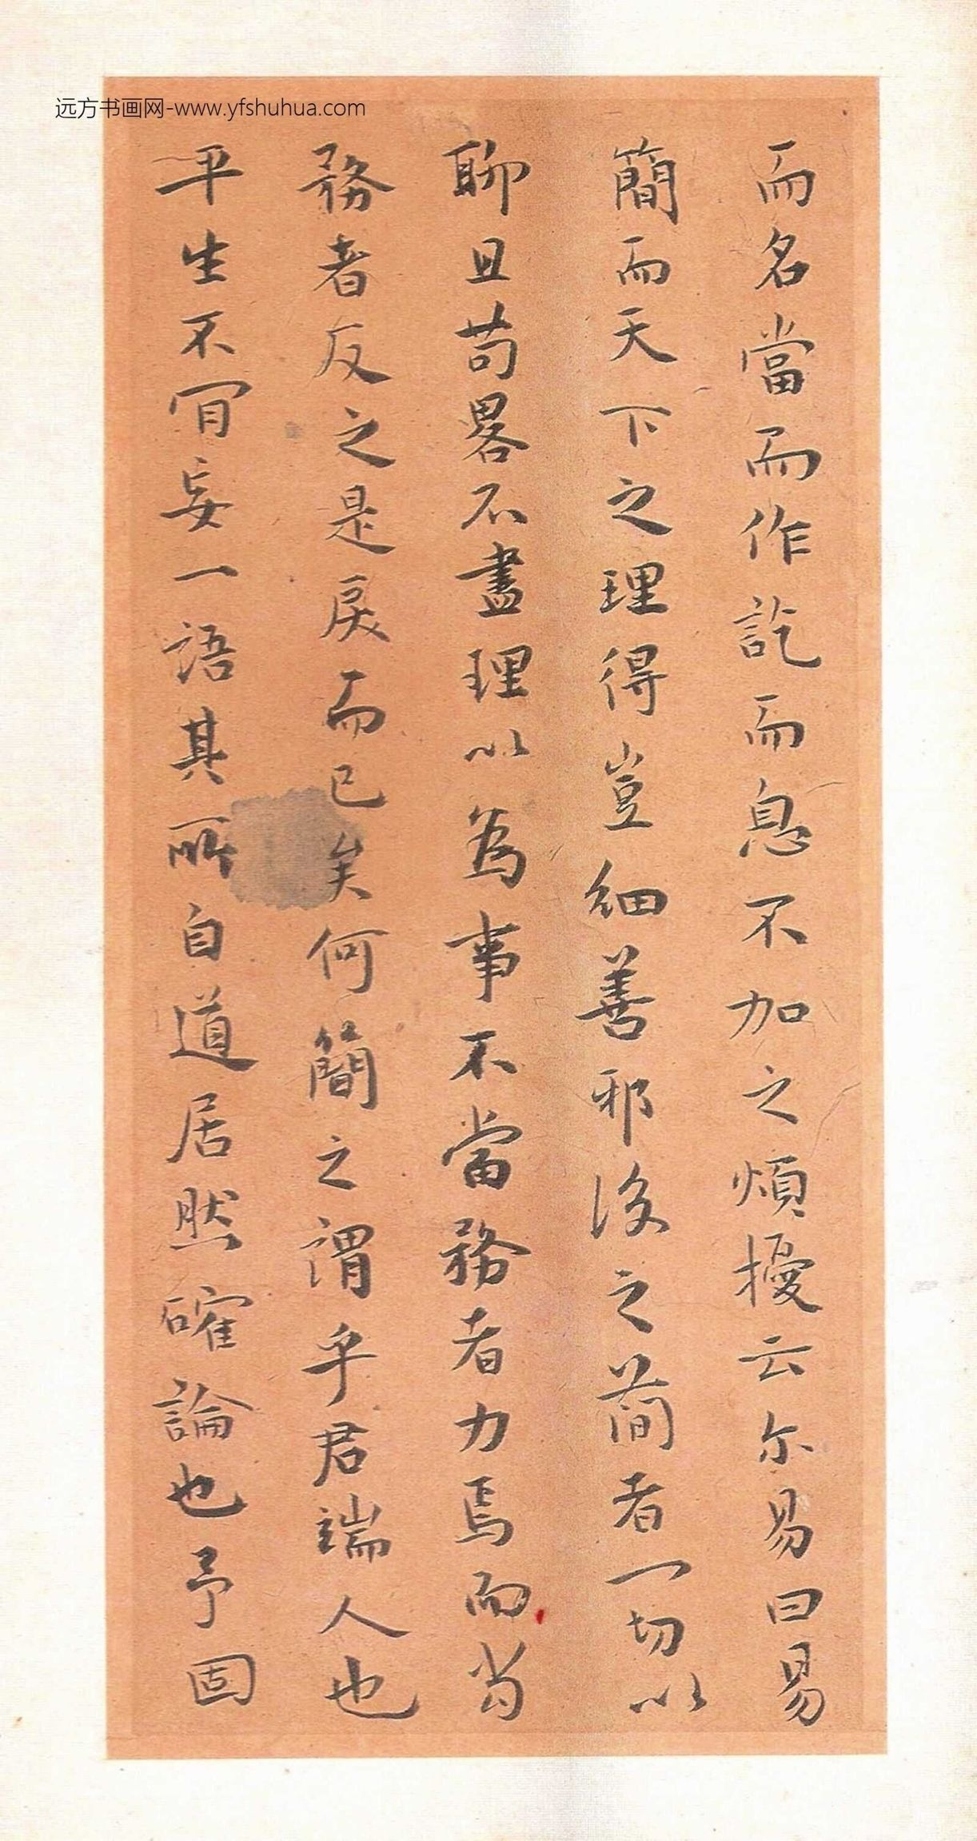 远方书画网-www.yfshuhua.com
而名當而作訖而息不加之煩擾云尔易曰易
簡而天下之理得豈細善邪後之簡者一切以
聊且苟畧不盡理以為事不當務者力焉而当
務者反之是戾而已矣何簡之謂乎君端人也
平生不肎妄一語其所自道居然確論也予固